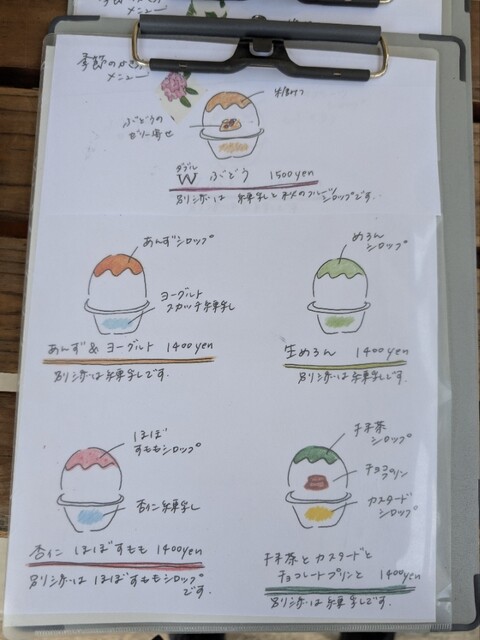 季節のかき氷
メニュー
ぶどうの
ゼリー寄せ
ダブル
W ぶどう 1500yen
別添は 練乳と秋のフルーツ
シロップです。
あんずシロップ
ヨーグルト
スカッチ練乳
あんず&ヨーグルト 1400yen
別添は練乳です。
めろん
シロップ
生めろん 1400yen
別添は練乳です。
ほぼ
すももシロップ
杏仁練乳
杏仁 ほぼすもも 1400yen
別添は ほぼすももシロップ
です。
抹茶
シロップ
チョコ
プリン
カスタード
シロップ
抹茶とカスタードと
チョコレートプリンと 1400yen
別添は練乳です。